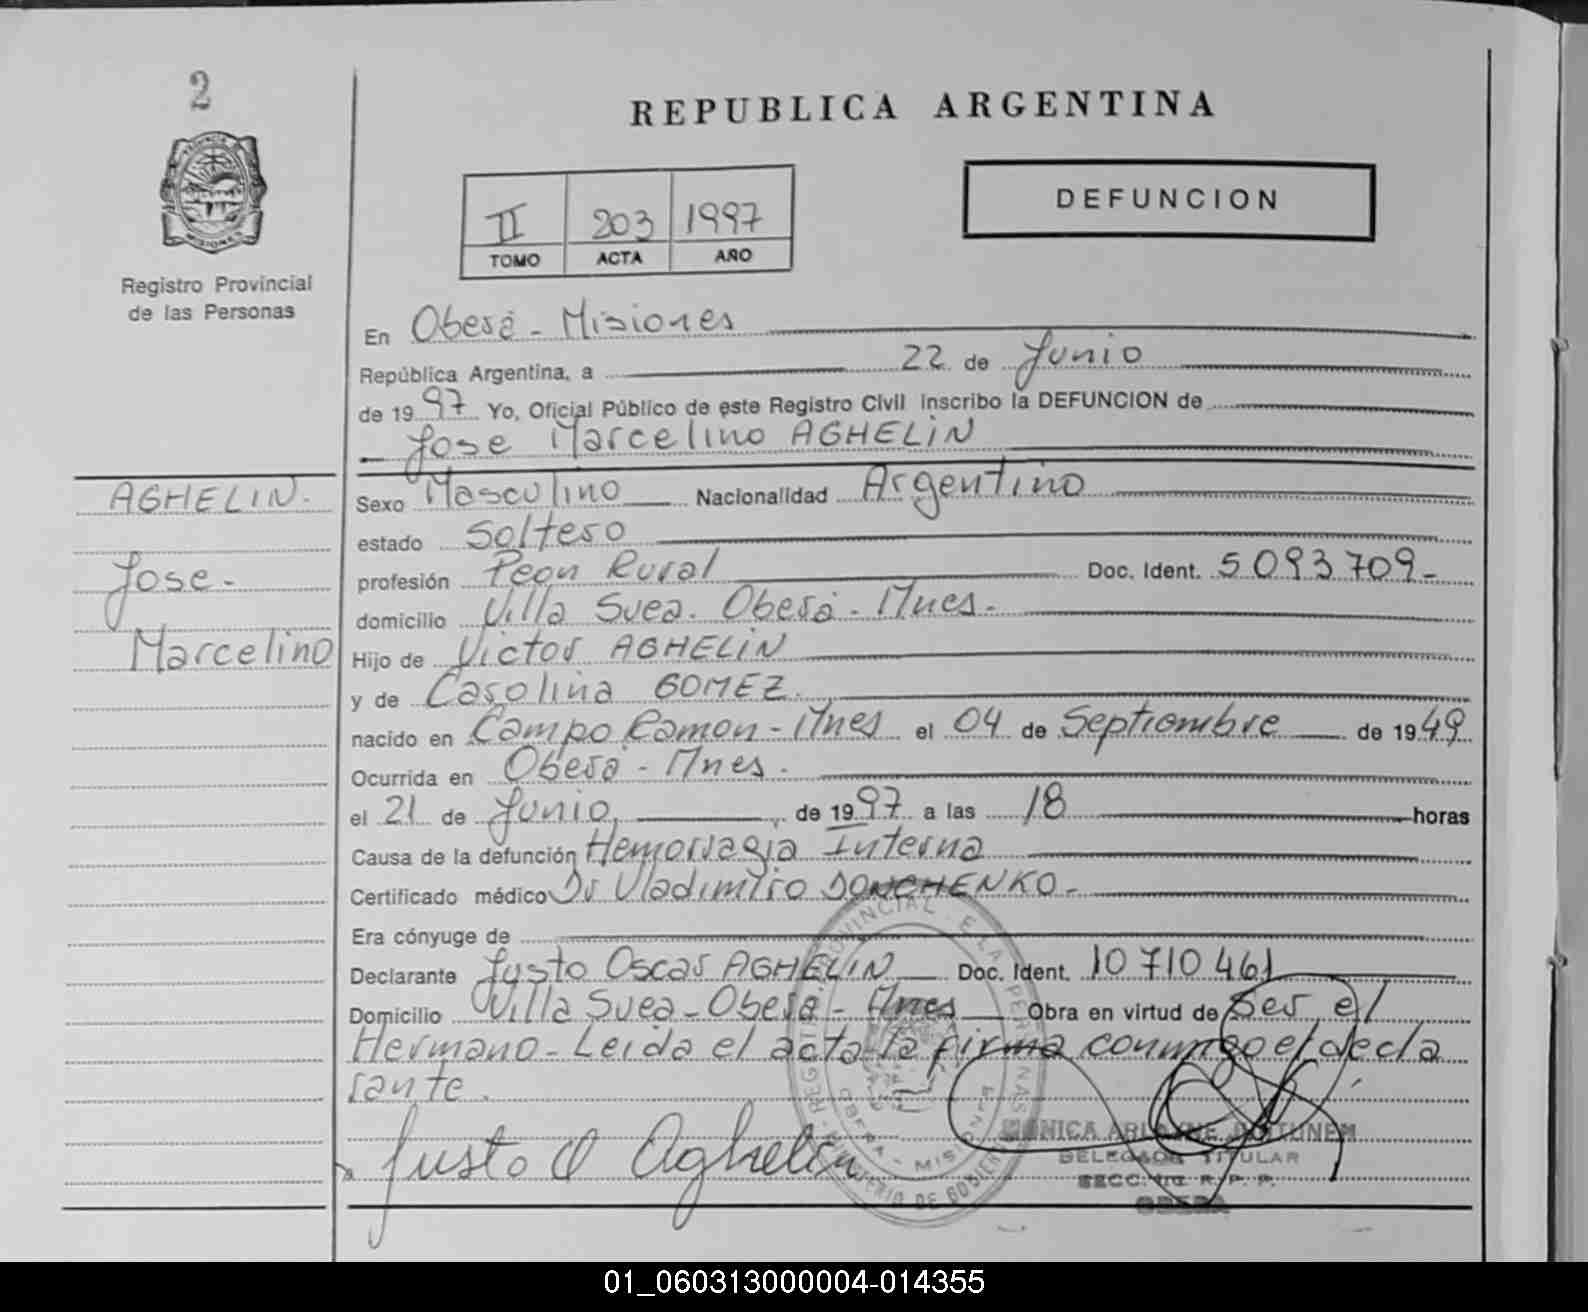 2
REPUBLICA ARGENTINA
DEFUNCION
II 203 1997
TOMO ACTA AÑO
PROVINCIA
MISIONES
Registro Provincial
de las Personas
En Oberá - Misiones
República Argentina, a 22 de Junio
de 1997 Yo, Oficial Público de este Registro Civil inscribo la DEFUNCION de
Jose Marcelino AGHELIN
AGHELIN.
Jose -
Marcelino
Sexo Masculino Nacionalidad Argentino
estado Soltero
profesión Peon Rural Doc. Ident. 5093709-
domicilio Villa Svea. Oberá - Mnes -
Hijo de Victor AGHELIN
y de Carolina GOMEZ.
nacido en Campo Ramon - Mnes el 04 de Septiembre de 1949
Ocurrida en Oberá - Mnes.
el 21 de Junio, de 1997 a las 18 horas
Causa de la defunción Hemorragia Interna
Certificado médico Dr Vladimiro DONCHENKO -
Era cónyuge de
Declarante Justo Oscar AGHELIN Doc. Ident. 10710461
Domicilio Villa Svea - Oberá - Mnes Obra en virtud de Ser el
Hermano - Leida el acta la firma conmigo el decla
rante.
Justo O Aghelin
OBERA - MISIONES
MINISTERIO DE GOBIERNO
DELEGADA TITULAR
SECC. 1ra R. P. P.
OBERA
01_060313000004-014355